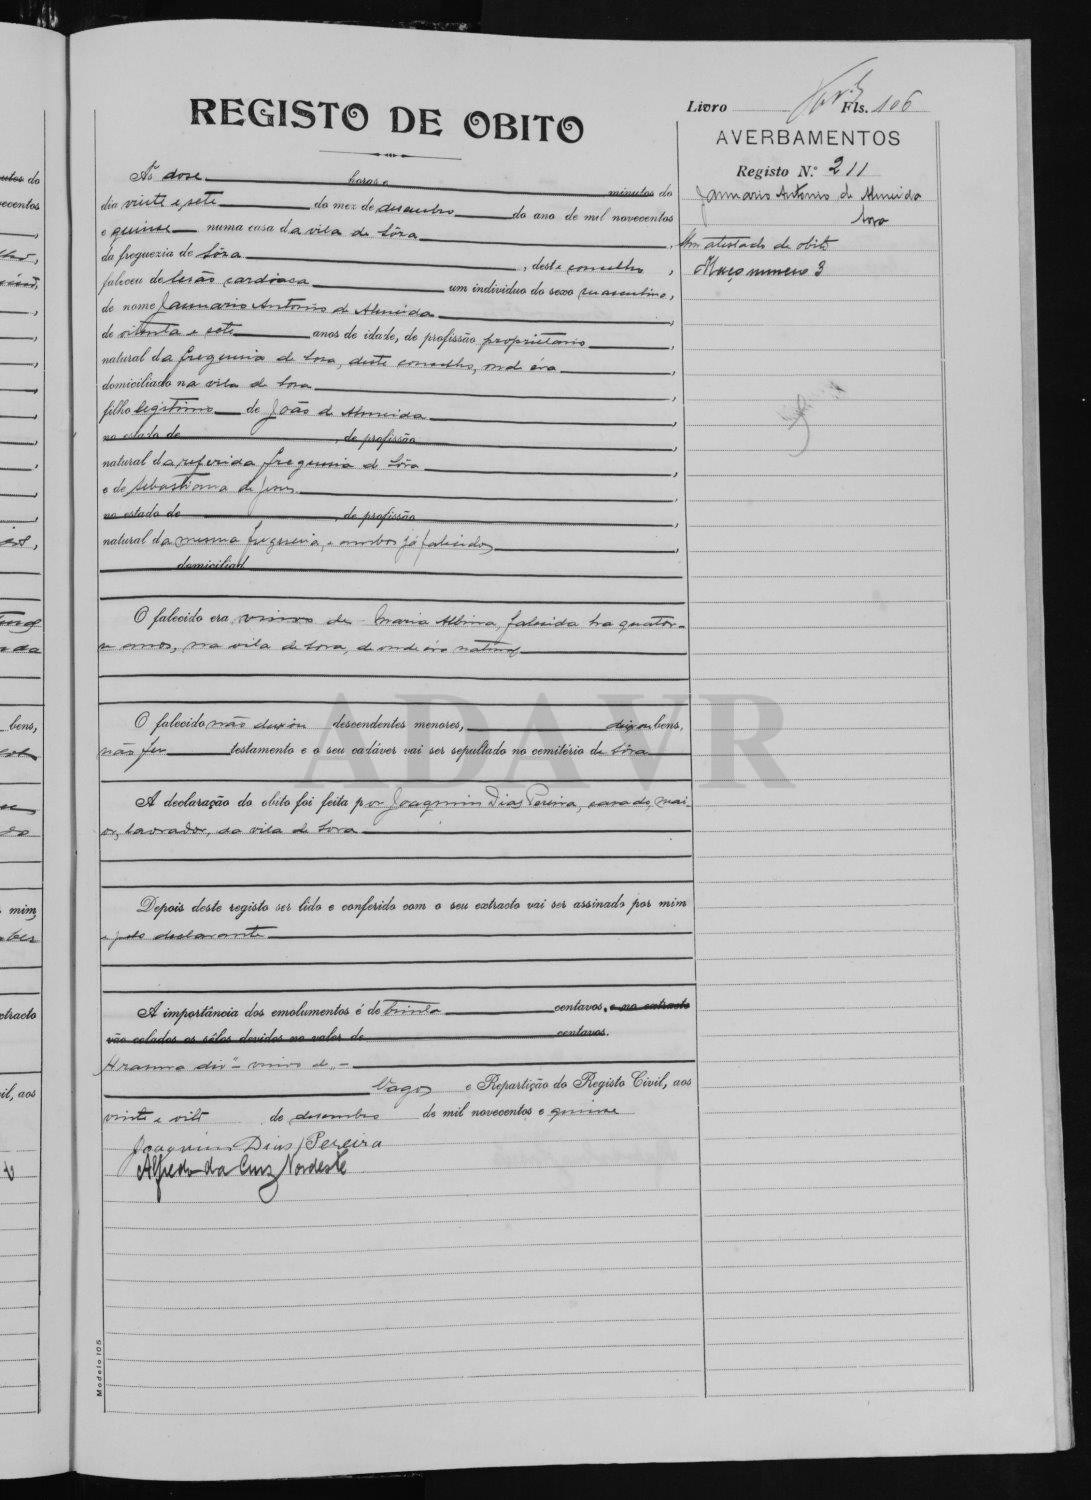 Livro Fls. 106
REGISTO DE OBITO
AVERBAMENTOS
Registo N.º 211
Januario Antonio de Almeida
Sôza
Um atestado de obito
Maço numero 3
Ás doze horas e minutos do
dia vinte e sete do mez de desembro do ano de mil novecentos
e quinse numa casa da vila de Sôza,
da freguezia de Sôza, deste concelho,
faleceu de lesão cardiaca um individuo do sexo masculino,
de nome Januario Antonio de Almeida,
de oitenta e sete anos de idade, de profissão proprietario,
natural da freguesia de Soza, deste concelho, onde éra,
domiciliado na vila de Soza,
filho legitimo de João de Almeida,
no estado de, de profissão
natural da referida freguesia de Sôza,
e de Sebastiana de Jesus,
no estado de, de profissão,
natural da mesma freguesia, e ambos já falecidos,
domiciliad
O falecido era viuvo de Maria Albina, falecida ha quator-
ze anos, na vila de Soza, de onde éra natural
O falecido não deixou descendentes menores, deixou bens,
não fez testamento e o seu cadáver vai ser sepultado no cemitério de Sôza
A declaração do obito foi feita por Joaquim Dias Pereira, casado, mai-
or, lavrador, da vila de Soza
Depois deste registo ser lido e conferido com o seu extracto vai ser assinado por mim
e pelo declarante
A importância dos emolumentos é de trinta centavos, e no extracto
vão colados os sêlos devidos no valor de centavos.
A rasura diz "viuvo de"
Vagos e Repartição do Registo Civil, aos
vinte e oito de desembro de mil novecentos e quinse
Joaquim Dias Pereira
Alfredo da Cruz Nordeste
ADAVR
Modelo 105